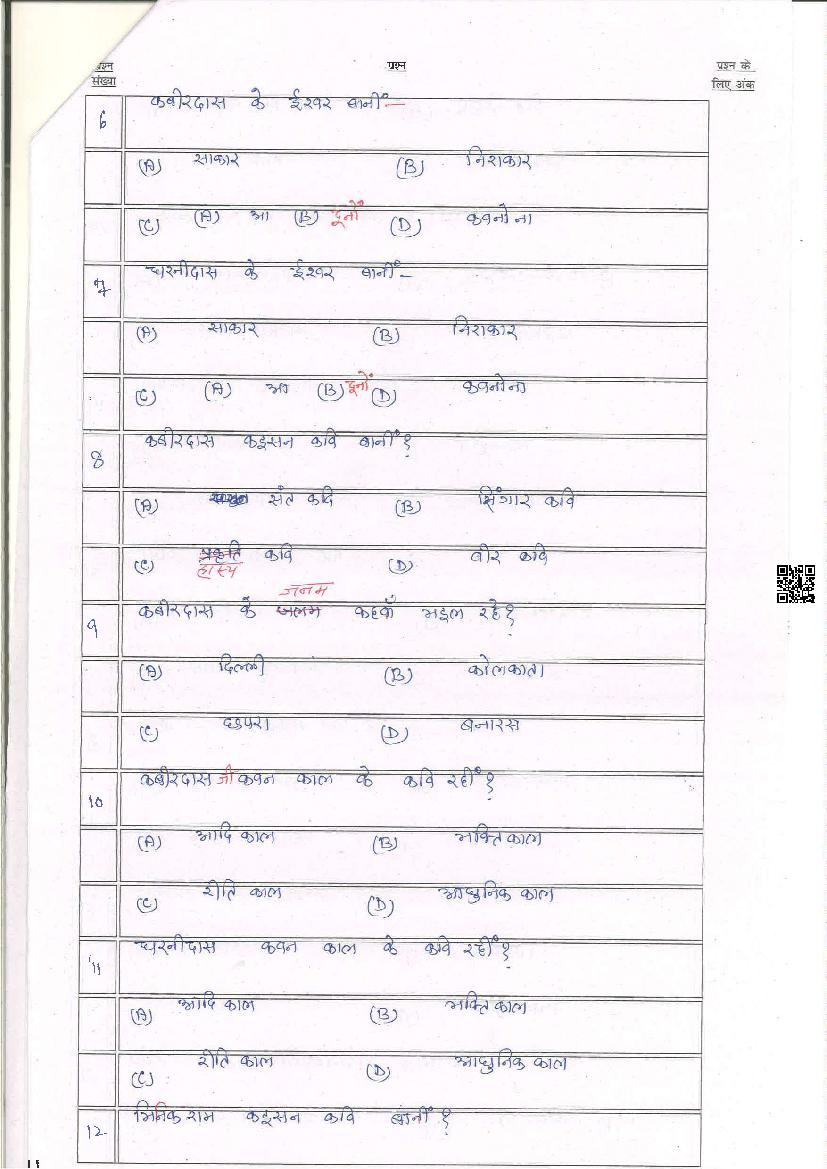 प्रश्न प्रश्न प्रश्न के
संख्या लिए अंक
6 कबीरदास के ईश्वर बानीं—
(A) साकार (B) निराकार
(C) (A) आ (B) दूनों (D) कवनो ना
7 धरनीदास के ईश्वर बानीं—
(A) साकार (B) निराकार
(C) (A) आ (B) दूनों (D) कवनो ना
8 कबीरदास कइसन कवि बानीं?
(A) संत कवि (B) सिंगार कवि
(C) प्रकृति कवि (D) बीर कवि
हास्य
जनम
9 कबीरदास के जलम कहवाँ भइल रहे?
(A) दिल्ली (B) कोलकाता
(C) छपरा (D) बनारस
10 कबीरदास जी कवन काल के कवि रहीं?
(A) आदि काल (B) भक्ति काल
(C) रीति काल (D) आधुनिक काल
11 धरनीदास कवन काल के कवि रहीं?
(A) आदि काल (B) भक्ति काल
(C) रीति काल (D) आधुनिक काल
12 भिनिक राम कइसन कवि बानीं?